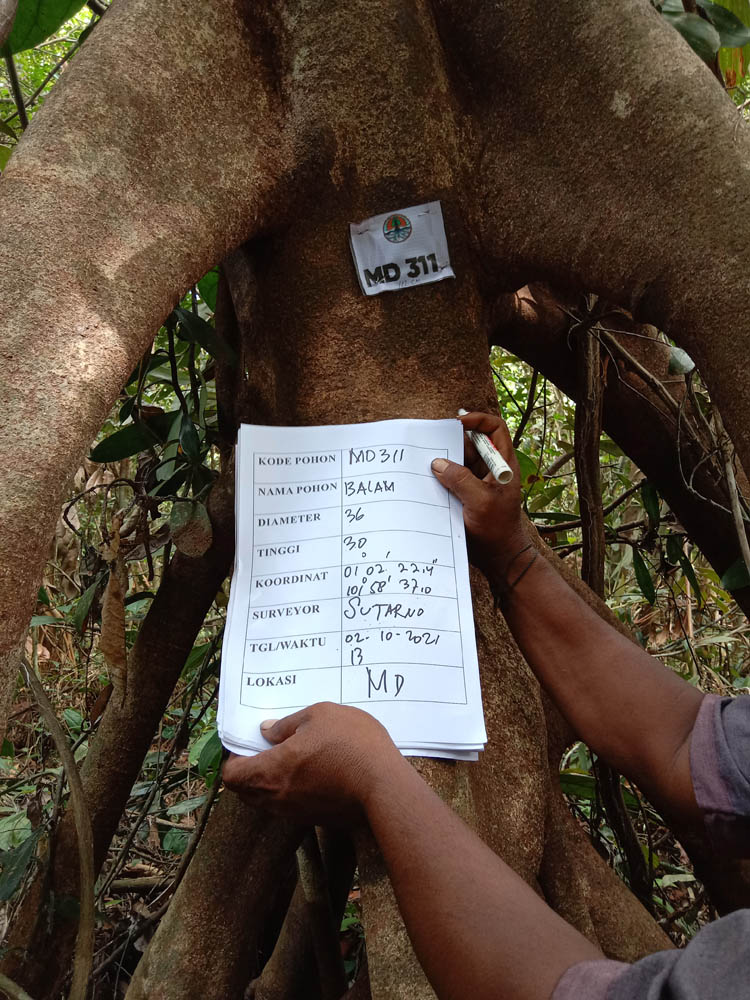 MD 311
KODE POHON MD311
NAMA POHON BALAM
DIAMETER 36
TINGGI 30
KOORDINAT 01° 02' 22.4"
101° 58' 37.0
SURVEYOR SUTARNO
TGL/WAKTU 02-10-2021
13
LOKASI MD